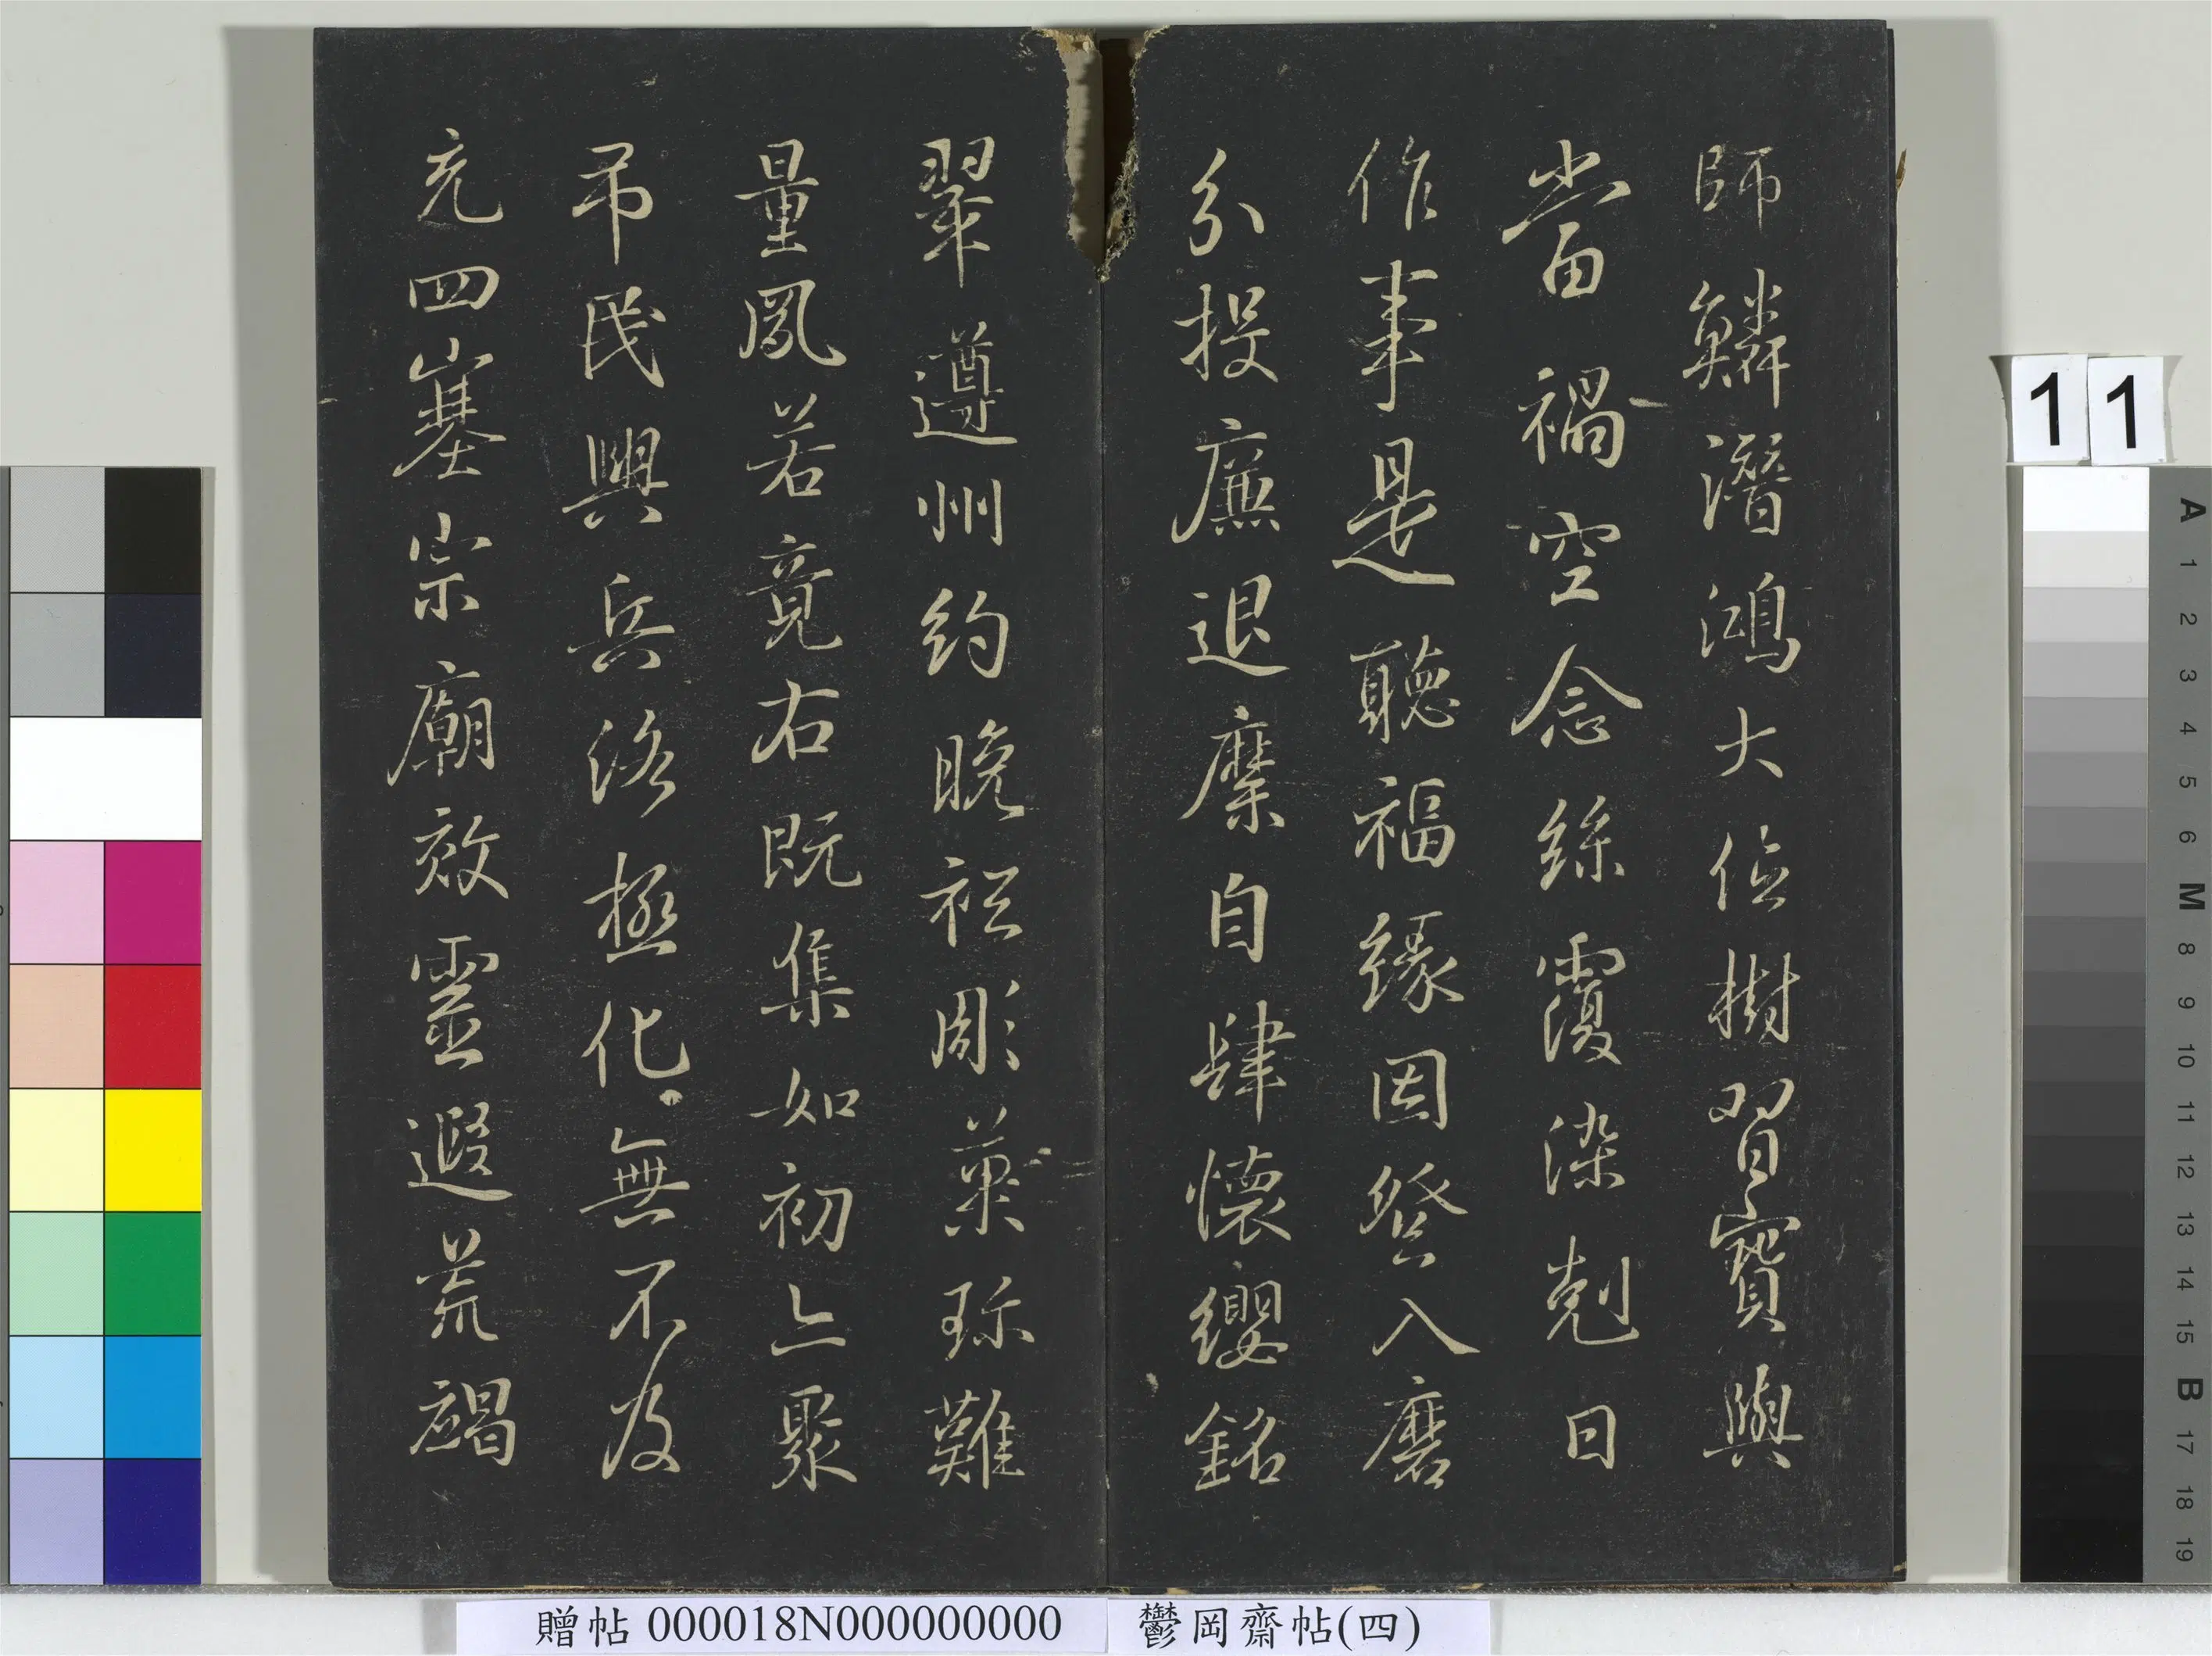 師鱗潛鴻大位樹習寶與
當禍空念絲覆染剋日
作事是聽福緣因登入磨
分投廉退縻自肆懷纓銘
翠遵州約晚祗彫菓珎難
量鳳若竟右既集如初上聚
吊民興兵洛極化無不及
充四塞宗廟效靈遐荒竭
11
A 1 2 3 4 5 6 M 8 9 10 11 12 13 14 15 B 17 18 19
贈帖 000018N000000000
鬱岡齋帖(四)